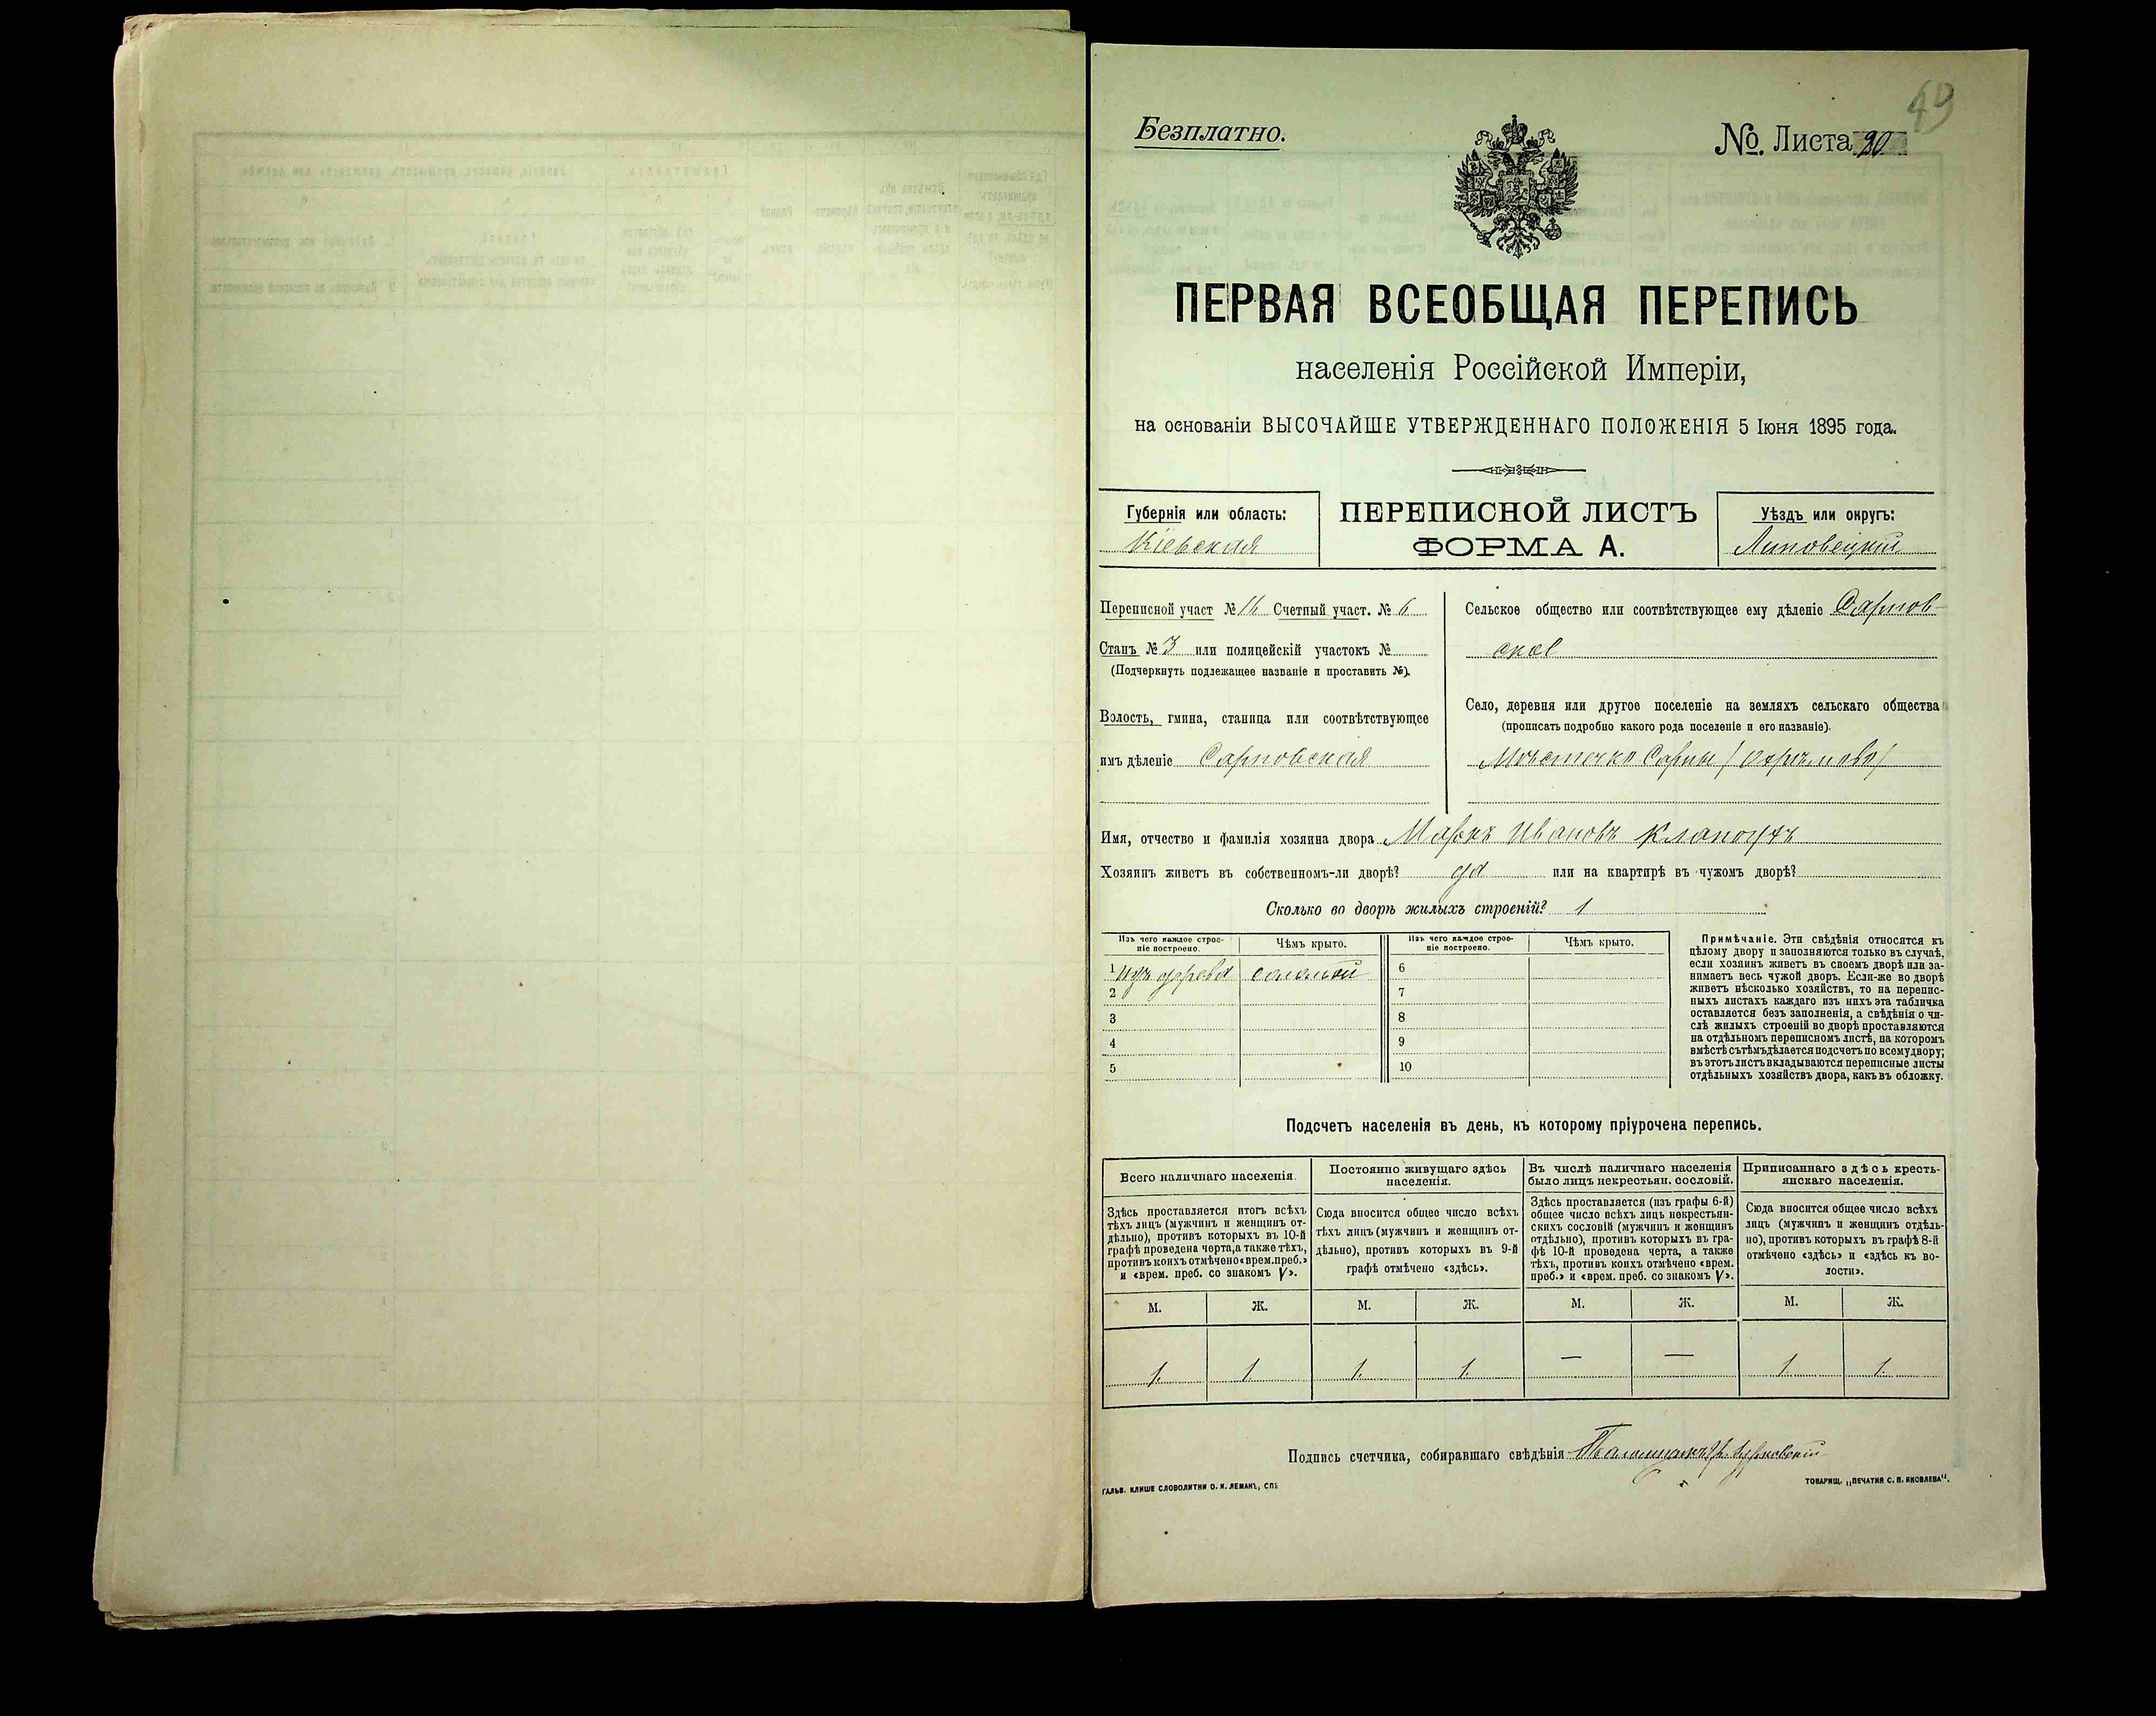 49
Безплатно.
№. Листа 20
ПЕРВАЯ ВСЕОБЩАЯ ПЕРЕПИСЬ
населенія Россійской Имперіи,
на основаніи ВЫСОЧАЙШЕ УТВЕРЖДЕННАГО ПОЛОЖЕНІЯ 5 Іюня 1895 года.
Губернія или область:
Кіевская
ПЕРЕПИСНОЙ ЛИСТЪ
ФОРМА А.
Уѣздъ или округъ:
Липовецкій
Переписной участ № 16 Счетный участ. № 6
Станъ № 3 или полицейскій участокъ №
(Подчеркнуть подлежащее названіе и проставить №).
Волость, гмина, станица или соотвѣтствующее
имъ дѣленіе Сарновская
Сельское общество или соотвѣтствующее ему дѣленіе Сарнов-
ское
Село, деревня или другое поселеніе на земляхъ сельскаго общества
(прописать подробно какого рода поселеніе и его названіе).
Мѣстечко Сарны
Имя, отчество и фамилія хозяина двора Маркъ Ивановъ Клапоухъ
Хозяинъ живетъ въ собственномъ-ли дворѣ? да или на квартирѣ въ чужомъ дворѣ?
Сколько во дворѣ жилыхъ строеній? 1
Изъ чего каждое строе-
ніе построено.
Чѣмъ крыто.
Изъ чего каждое строе-
ніе построено.
Чѣмъ крыто.
1 Изъ дерева соломой 6
2 7
3 8
4 9
5 10
Примѣчаніе. Эти свѣдѣнія относятся къ
цѣлому двору и заполняются только въ случаѣ,
если хозяинъ живетъ въ своемъ дворѣ или за-
нимаетъ весь чужой дворъ. Если-же во дворѣ
живетъ нѣсколько хозяйствъ, то на перепис-
ныхъ листахъ каждаго изъ нихъ эта табличка
оставляется безъ заполненія, а свѣдѣнія о чи-
слѣ жилыхъ строеній во дворѣ проставляются
на отдѣльномъ переписномъ листѣ, на которомъ
вмѣстѣ съ тѣмъ дѣлается подсчетъ по всему двору;
въ этотъ листъ вкладываются переписные листы
отдѣльныхъ хозяйствъ двора, какъ въ обложку.
Подсчетъ населенія въ день, къ которому пріурочена перепись.
Всего наличнаго населенія.
Здѣсь проставляется итогъ всѣхъ
тѣхъ лицъ (мужчинъ и женщинъ от-
дѣльно), противъ которыхъ въ 10-й
графѣ проведена черта, а также тѣхъ,
противъ коихъ отмѣчено «врем. преб.»
и «врем. преб. со знакомъ V».
Постоянно живущаго здѣсь
населенія.
Сюда вносится общее число всѣхъ
тѣхъ лицъ (мужчинъ и женщинъ от-
дѣльно), противъ которыхъ въ 9-й
графѣ отмѣчено «здѣсь».
Въ числѣ наличнаго населенія
было лицъ некрестьян. сословій.
Здѣсь проставляется (изъ графы 6-й)
общее число всѣхъ лицъ некрестьян-
скихъ сословій (мужчинъ и женщинъ
отдѣльно), противъ которыхъ въ гра-
фѣ 10-й проведена черта, а также
тѣхъ, противъ коихъ отмѣчено «врем.
преб.» и «врем. преб. со знакомъ V».
Приписаннаго здѣсь кресть-
янскаго населенія.
Сюда вносится общее число всѣхъ
лицъ (мужчинъ и женщинъ отдѣль-
но), противъ которыхъ въ графѣ 8-й
отмѣчено «здѣсь» и «здѣсь къ во-
лости».
М. Ж. М. Ж. М. Ж. М. Ж.
1. 1 1. 1. — — 1. 1.
Подпись счетчика, собиравшаго свѣдѣнія
ГАЛЬВ. КЛИШЕ СЛОВОЛИТНИ О. И. ЛЕМАНЪ, СПБ
ТОВАРИЩ. „ПЕЧАТНЯ С. П. ЯКОВЛЕВА“.